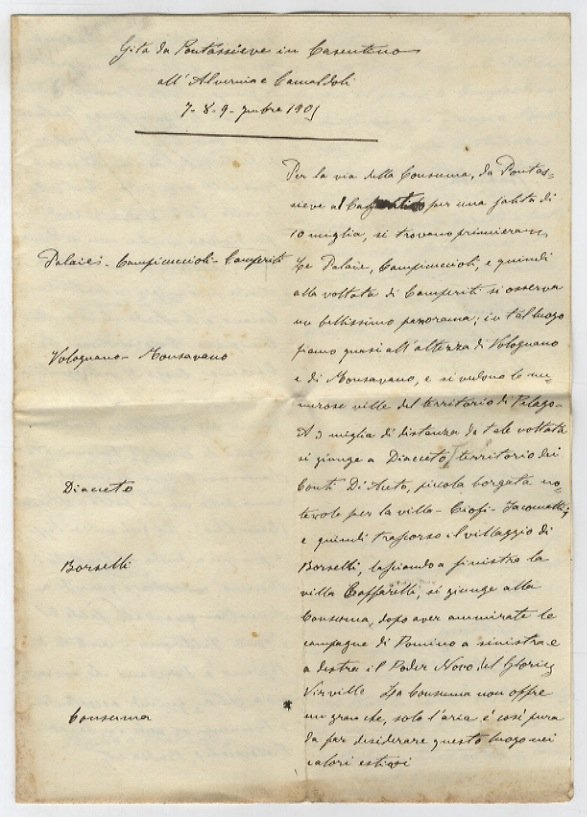 Gita da Pontassieve in Casentino
all'Alvernia e Camaldoli
7-8-9- 1905
Per la via della Consuma, da Pontas=
sieve al per una salita di
10 miglia, si trovano
Palaie - Campicuccioli - Camperiti
Le Palaie, Campicuccioli, e quindi
alla voltata di Camperiti si osserva
un bellissimo panorama; in tal luogo
Volognano - Monsavano
siamo quasi all'altezza di Volognano
e di Monsavano, e si vedono le nu=
merose ville del territorio di Pelago-
A 3 miglia di distanza da tale voltata
Diacceto
si giunge a Diacceto, territorio dei
Conti piccola borgata no=
tevole per la villa
e quindi trascorso il villaggio di
Borselli
Borselli, lasciando a sinistra la
villa si giunge alla
Consuma, dopo aver ammirate le
campagne di Pomino a sinistra e
a destra il Poder Novo del
La Consuma non offre
Consuma
un gran che, solo l'aria è così pura
da far desiderare questo luogo nei
calori estivi